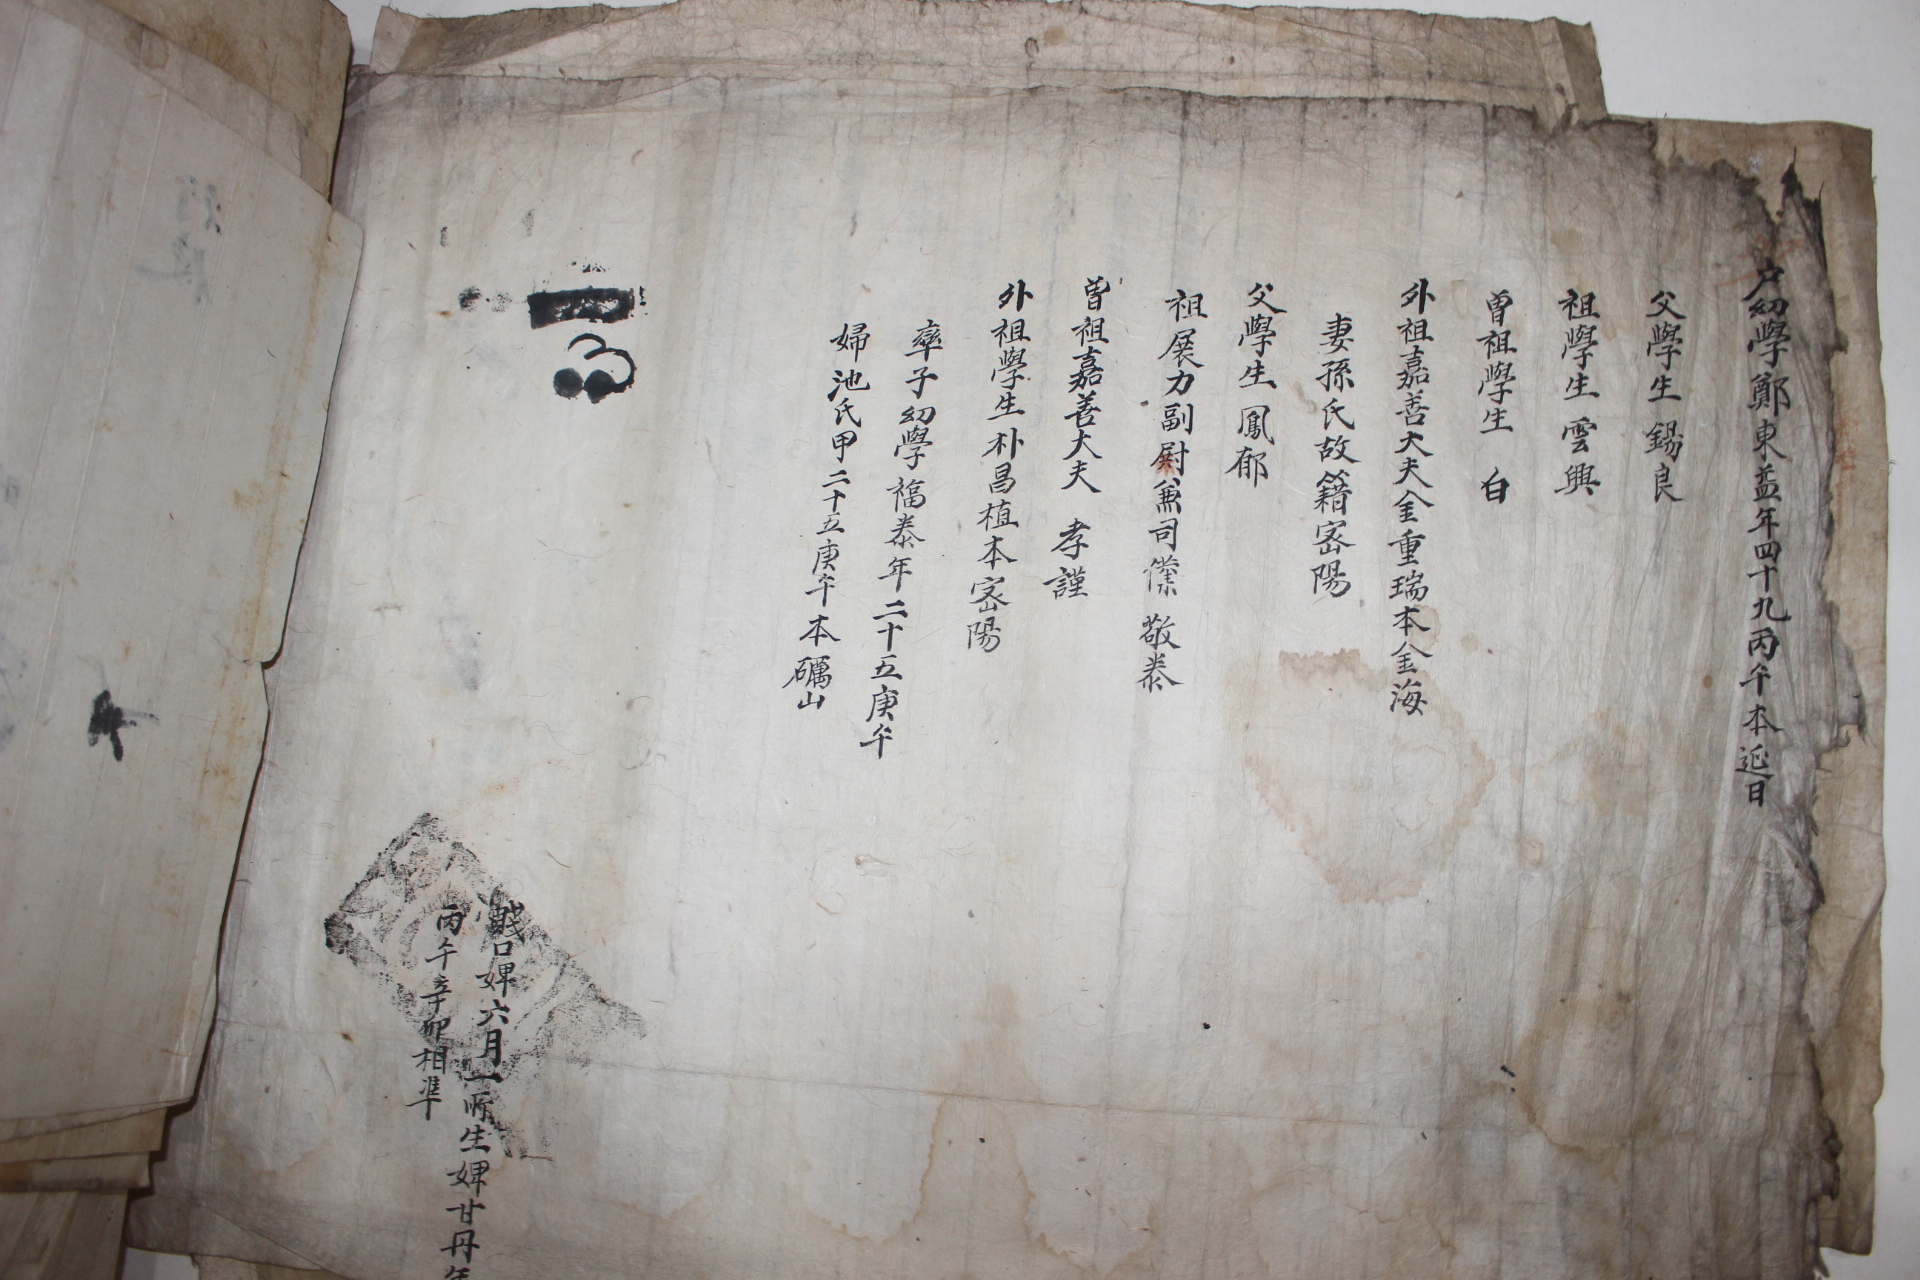 户幼學鄭東益年四十九丙午本延日
父學生錫良
祖學生雲興
曾祖學生白
外祖嘉善大夫金重瑞本金海
妻孫氏故籍密陽
父學生鳳郁
祖展力副尉兼司僕敬泰
曾祖嘉善大夫孝謹
外祖學生朴昌植本密陽
率子幼學福泰年二十五庚午
婦池氏甲二十五庚午本礪山
賤口婢六月一所生婢甘丹年
丙午辛卯相準